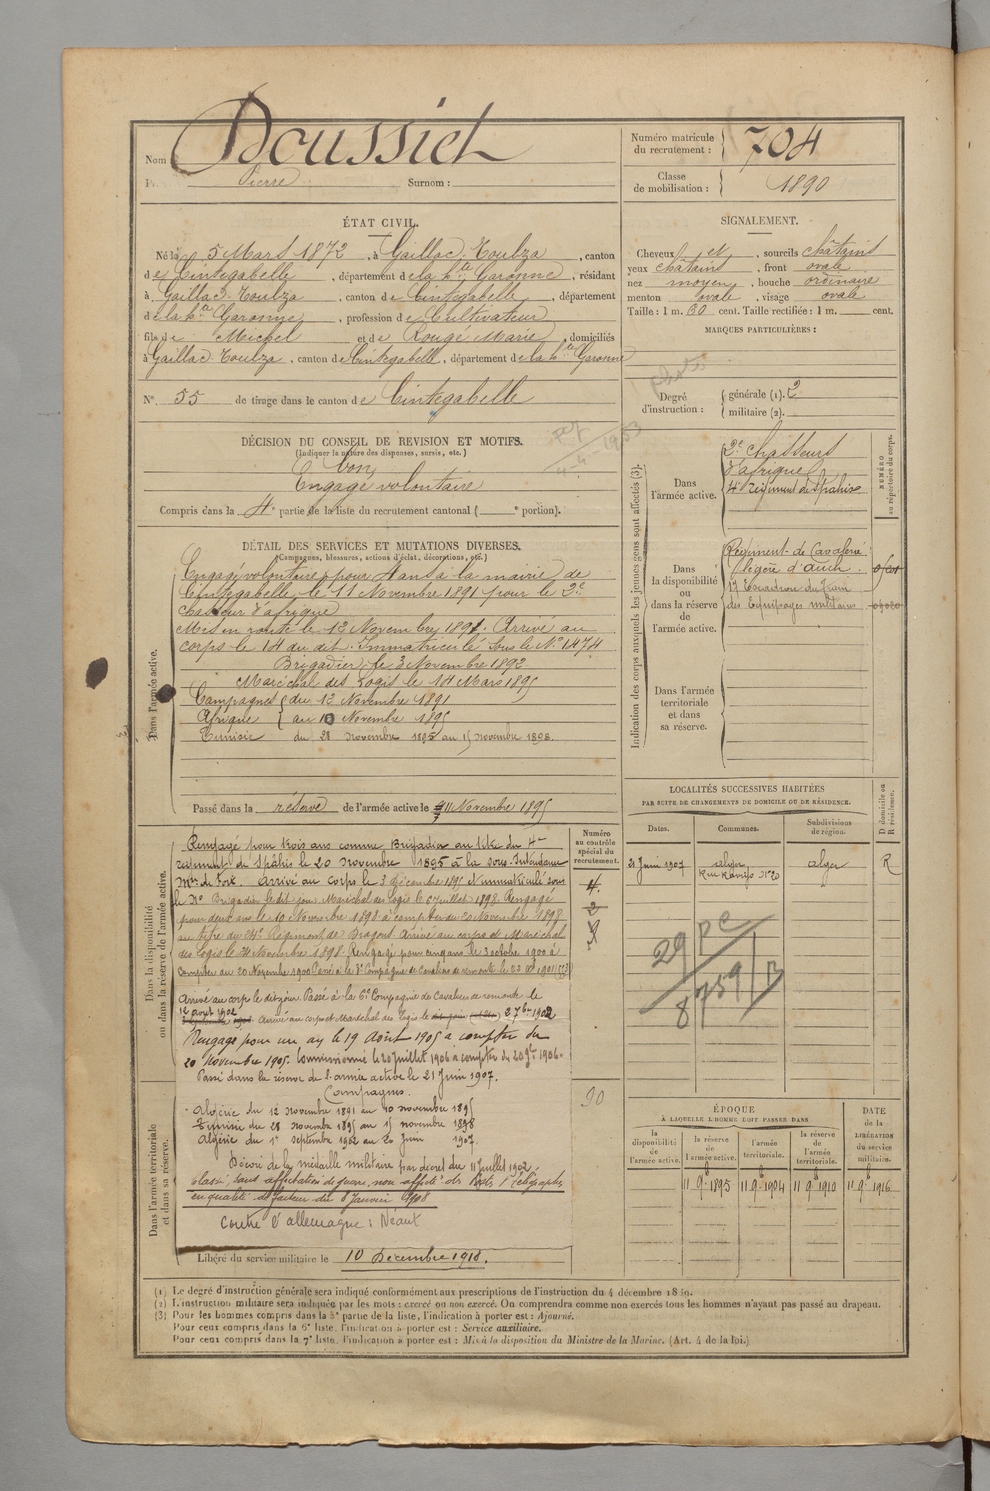 Nom Doussiet
Pierre Surnom :
Numéro matricule du recrutement : 704
Classe de mobilisation : 1890
ÉTAT CIVIL.
Né le 5 Mars 1872, à Gaillac-Toulza, canton
de Cintegabelle, département de la Hte Garonne, résidant
à Gaillac-Toulza, canton de Cintegabelle, département
de la Hte Garonne, profession de Cultivateur
fils de Michel et de Rougé Marie, domiciliés
à Gaillac-Toulza, canton de Cintegabelle, département de la Hte Garonne
N° 55 de tirage dans le canton de Cintegabelle
SIGNALEMENT.
Cheveux et, sourcils châtains
yeux châtains, front ovale
nez moyen, bouche ordinaire
menton ovale, visage ovale
Taille : 1 m. 60 cent. Taille rectifiée : 1 m. cent.
MARQUES PARTICULIÈRES :
Degré d'instruction : générale (1). 2
militaire (2).
DÉCISION DU CONSEIL DE REVISION ET MOTIFS.
(Indiquer la nature des dispenses, sursis, etc.)
bon
Engagé volontaire
Compris dans la 4e partie de la liste du recrutement cantonal ( e portion).
4-4-1953
DÉTAIL DES SERVICES ET MUTATIONS DIVERSES.
(Campagnes, blessures, actions d'éclat, décorations, etc.)
Dans l'armée active.
Engagé volontaire pour 4 ans à la mairie de
Cintegabelle, le 11 Novembre 1891 pour le 2e
chasseur d'afrique
Mis en route le 12 Novembre 1891. Arrivé au
corps le 14 du dit. Immatriculé sous le N° 1474
Brigadier le 3 Novembre 1892
Maréchal des Logis le 14 Mars 1895
Campagnes du 12 Novembre 1891
Afrique au 10 Novembre 1895
Tunisie du 28 novembre 1895 au 15 novembre 1898.
Passé dans la réserve de l'armée active le 11 Novembre 1895
Indication des corps auxquels les jeunes gens sont affectés (3).
NUMÉRO au répertoire du corps.
Dans l'armée active.
2e chasseurs
d'afrique
4e régiment de Spahis
Dans la disponibilité ou dans la réserve de l'armée active.
Régiment de Cavalerie
légère d'Auch.
17 Escadron du train
des Equipages militaires
Dans l'armée territoriale et dans sa réserve.
Dans la disponibilité ou dans la réserve de l'armée active.
Rengagé pour trois ans comme Brigadier au titre du 4e
régiment de Spahis le 20 novembre 1895 à la sous-Intendance
Mre de Foix. Arrivé au corps le 3 décembre 1895 et immatriculé sous
le N° Brigadier le dit jour Maréchal des logis le 6 juillet 1898. Rengagé
pour deux ans le 10 Novembre 1898 à compter du 20 Novembre 1898
au titre du Régiment de Dragons. Arrivé au corps et Maréchal
des logis le Novembre 1898. Rengagé pour cinq ans le 3 octobre 1900 à
compter du 20 Novembre 1900 Passé à la Compagnie de Cavaliers de remonte le 1901
Arrivé au corps le dit jour. Passé à la 6e Compagnie de Cavaliers de remonte le
12 avril 1902 Arrivé au corps et Maréchal des logis le 27 bre 1902
Rengagé pour un an le 19 Août 1905 à compter du
20 novembre 1905. Commissionné le 20 juillet 1906 à compter du 20 9bre 1906.
Passé dans la réserve de l'armée active le 21 Juin 1907.
Campagnes.
Algérie du 12 novembre 1891 au 10 novembre 1895
Tunisie du 28 novembre 1895 au 15 novembre 1898
Algérie du 1er septembre 1902 au 20 Juin 1907.
Décoré de la médaille militaire par décret du 11 Juillet 1902
Classé sans affectation de guerre, non affecté des Postes, Télégraphes
en qualité de facteur du 8 Janvier 1908
Contre l'allemagne : Néant
Dans l'armée territoriale et dans sa réserve.
Libéré du service militaire le 10 Décembre 1918.
Numéro au contrôle spécial du recrutement.
90
LOCALITÉS SUCCESSIVES HABITÉES
PAR SUITE DE CHANGEMENTS DE DOMICILE OU DE RÉSIDENCE.
Dates. Communes. Subdivisions de région. D domicile ou R résidence.
21 Juin 1907 alger alger R
29 PC
8759/B
ÉPOQUE
À LAQUELLE L'HOMME DOIT PASSER DANS
DATE de la LIBÉRATION du service militaire.
la disponibilité de l'armée active. la réserve de l'armée active. l'armée territoriale. la réserve de l'armée territoriale.
11 9bre 1895 11 9bre 1904 11 9bre 1910 11 9bre 1916
(1) Le degré d'instruction générale sera indiqué conformément aux prescriptions de l'instruction du 4 décembre 1889.
(2) L'instruction militaire sera indiquée par les mots : exercé ou non exercé. On comprendra comme non exercés tous les hommes n'ayant pas passé au drapeau.
(3) Pour les hommes compris dans la 5e partie de la liste, l'indication à porter est : Ajourné.
Pour ceux compris dans la 6e liste, l'indication à porter est : Service auxiliaire.
Pour ceux compris dans la 7e liste, l'indication à porter est : Mis à la disposition du Ministre de la Marine. (Art. 4 de la loi.)